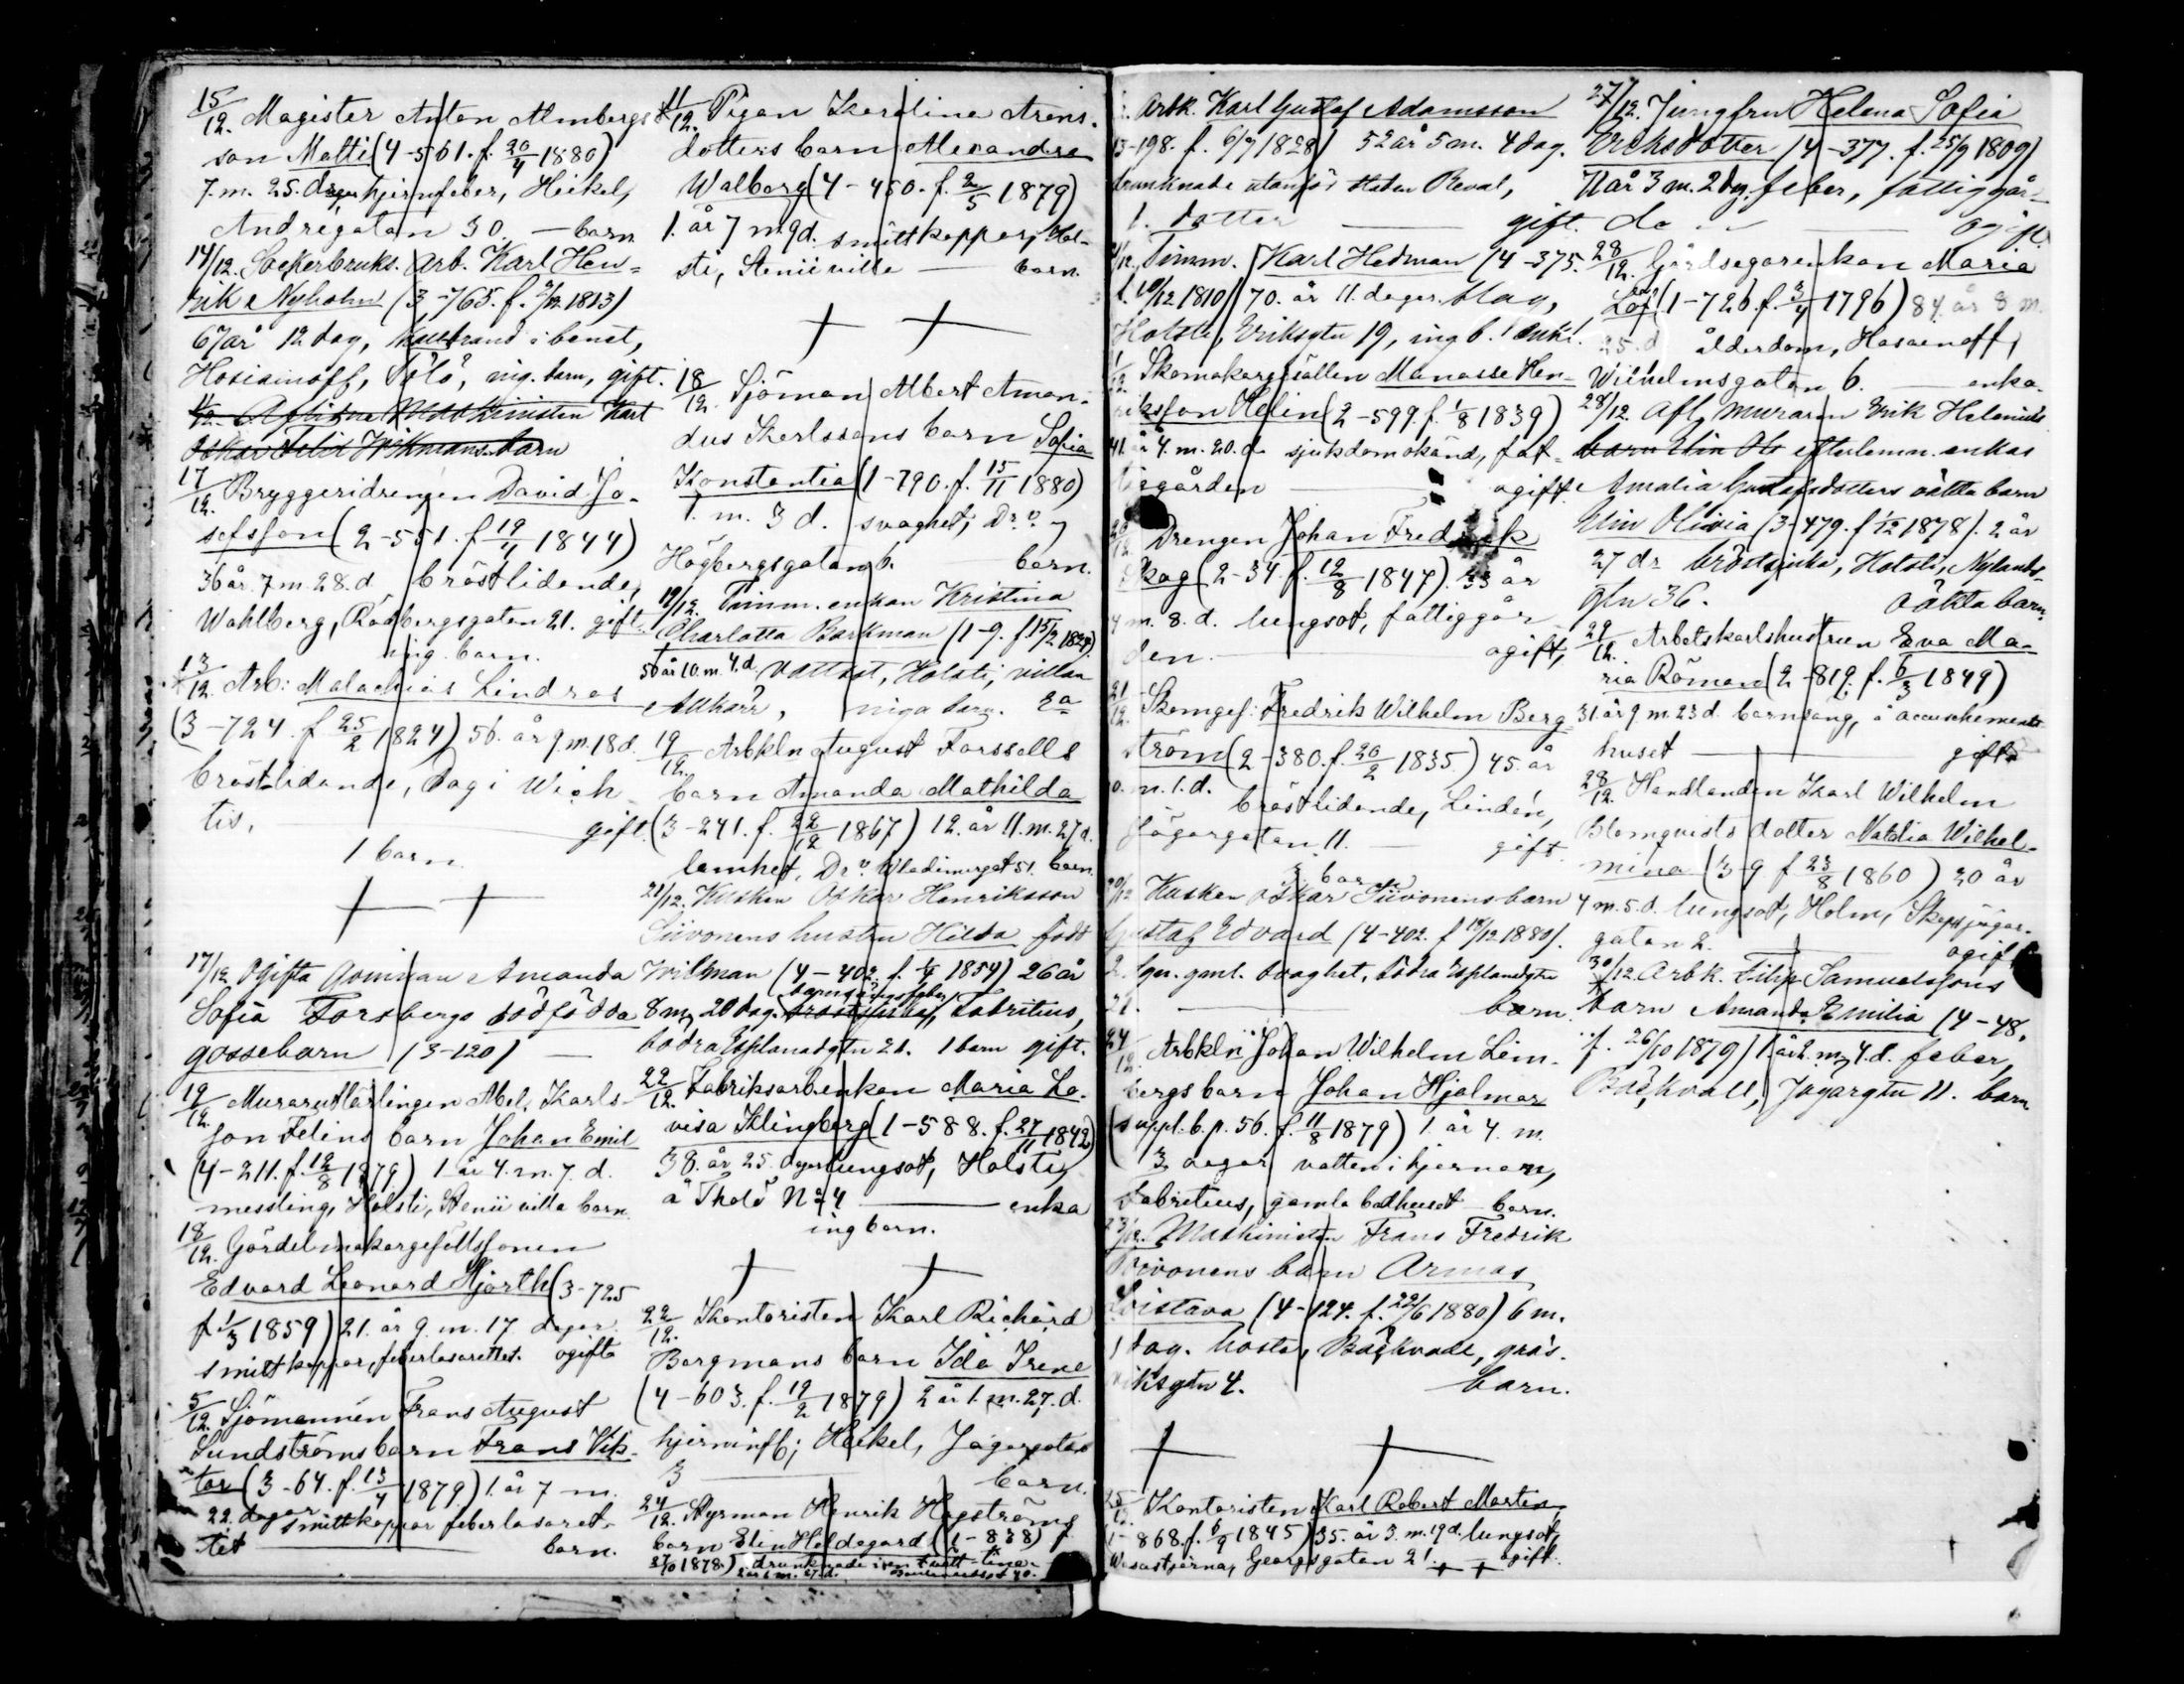 15/12. Magister Anton Almbergs
son Matti (4-561. f. 20/4 1880)
7. m. 25. dagar hjernfeber, Heikel,
Andrégatan 30. — barn
14/12. Sockerbruks. Arb. Karl Hen-
rik Nyholm (3-765. f. 2/12 1813)
67 år 12 dag, kallbrand i benet,
Hosiainoff, Tölö, ing. barn, gift.
11/12. Aflidne Maskinisten Karl
Oskar Felix Wikmans barn
17/12. Bryggeridrengen David Jo-
sefsson (2-551. f. 19/4 1844)
36 år. 7. m. 28. d. bröstlidande,
Wahlberg, Rödbergsgatan 21. gift.
ing. barn.
13/12. Arb: Malachias Lindros
(3-724. f 25/2 1824) 56. år 9. m. 18 d.
bröstlidande, Dog i Wich-
tis, gift.
1 barn.
17/12 Ogifta Qvinnan Amanda
Sofia Forsbergs dödfödda
gossebarn (3-120) —
19/12. Murarelärlingen Abel, Karls-
son Felins barn Johan Emil
(4-211. f. 12/8 1879) 1. år 4. m. 7. d.
messling, Holsti, Stenii villa barn.
18/12. Gördelmakargesällssonen
Edvard Leonard Hjorth (3-725
f 1/3 1859) 21. år 9. m. 17 dagar
smittkoppor, feberlasarettet. ogift
5/12. Sjömannen Frans August
Sundströms barn Frans Vik-
tor (3-64. f. 13/4 1879) 1. år 7 m.
22. dagar smittkoppor feberlasaret-
tet barn.
11/12. Pigan Karolina Arens-
dotters barn Alexandra
Walborg (4-450. f. 2/5 1879)
1. år 7 m. 9 d. smittkoppor, Hol-
sti, Stenii villa — barn.
18/12. Sjöman Albert Aman-
dus Karlssons barn Sofia
Konstantia (1-790. f. 15/11 1880)
1. m. 3 d. svaghet, Dr:o
Högbergsgatan 6. barn.
19/12. Timm. enkan Kristina
Charlotta Barkman (1-9. f 15/2 1830)
50 år 10. m. 4. d. vattsot, Holsti, villan
Alkärr, niga barn.
19/12. Arbkln August Forssells
barn Amanda Mathilda
(3-241. f. 22/12 1867) 12. år 11. m. 27 d.
lamhet, Dr:o Wladimirsgat 51. barn.
21/12. Kusken Oskar Henriksson
Siivonens hustru Hilda född
Willman (4-402. f. 1/4 1854) 26 år
barnsängsfeber
8 m, 20 dag. Fabritius,
Södra Esplanadgtn 21. 1 barn gift.
22/12. Fabriksarb. enkan Maria Lo-
visa Klingberg (1-588. f. 27/11 1842)
38. år 25. dagar lungsot, Holsti,
å Thölö No 4 — enka
ing barn.
22/12. Kontoristen Karl Richard
Bergmans barn Ida Irene
(4-603. f. 19/2 1879) 2 år 1. m. 27. d.
hjerninfl; Heikel, Jägargatan
3 — barn.
24/12. Styrman Henrik Hagströms
barn Elin Hildegard (1-838) f
27/10 1878.) drunknade i en tvätt-tina
2 år 1. m. 27. d.
Arbk. Karl Gustaf Adamsson
13-198. f. 6/7 1828) 52 år 5 m. 4 dag.
drunknade utanför staden Reval,
1. dotter — gift.
Timm. Karl Hedman (4-375.
f. 10/12 1810) 70. år 11. dagar slag,
Holsti, Eriksgtn 19, ing b. enkl.
Skomakargesällen Manasse Hen-
riksson Helin (2-599. f. 1/8 1839)
41. å 4. m. 20. d. sjukdom okänd, fat-
tiggården — ogift.
Drengen Johan Fredrik
Skog (2-34. f. 12/8 1847) 33 år
4 m. 8. d. lungsot, fattiggår-
den. — ogift,
21/12. Skomges: Fredrik Wilhelm Berg-
ström (2-380. f. 20/2 1835) 45 år
10. m. 1. d. bröstlidande, Lindén,
Jägargatan 11. — gift.
3 barn
20/12 Kusken Oskar Siivonens barn
Gustaf Edvard (4-402. f 18/12 1880).
2. dgr. gml. svaghet, Södra Esplanadgtn
21. — barn.
24/12. Arbkln Johan Wilhelm Lim-
bergs barn Johan Hjalmar
(suppl. b. p. 56. f. 11/8 1879) 1. år 4. m.
13 dagar vatten i hjernan,
Fabritius, gamla badhuset barn.
23/12. Maskinisten Frans Fredrik
Toivonens barn Armas
Loistava (4-124. f. 22/6 1880) 6 m.
1 dag. hosta, Bäckvall, gräs-
viksgtn 4. barn.
25/12. Kontoristen Karl Robert Martin,
(1-868. f. 6/9 1845) 35. år 3. m. 19 d. lungsot,
Wasastjerna, Georgsgatan 21. — ogift.
27/12. Jungfru Helena Sofia
Ericksdotter (4-377. f. 25/9 1809)
71 år 3 m. 2 dag. feber, fattiggår-
de — ogift.
28/12. Gårdsegarenkan Maria
Löf (1-726. f. 3/4 1796) 84. år 8 m.
25. d ålderdom, Hosainoff,
Wilhelmsgatan 6. — enka.
28/12. Afl, muraren Erik Helenius
barn Elin Oli efterlemn. enkas
Amalia Gustafsdotters oäkta barn
Elin Olivia (3-479. f 1/12 1878). 2 år
27 dr bröstsjuka, Holsti, Nylands-
gtn 36. Oäkta barn.
29/12. Arbetskarlshustrun Eva Ma-
ria Röman (2-819. f. 6/3 1849)
31. år 9 m 23 d. barnsäng, å accuchements-
huset — gift.
28/12. Handlanden Karl Wilhelm
Blomqvists dotter Natalia Wilhel-
mina (3-9 f 23/8 1860) 20 år
4 m. 5. d. lungsot, Holm, Skeppsjägar-
gatan 2. — ogift
30/12. Arbk. Filip Samuelssons
barn Amanda Emilia (4-48.
f. 26/10 1879) 1 år 2. m, 4. d. feber,
Bäckvall, Jägargtn 11. barn